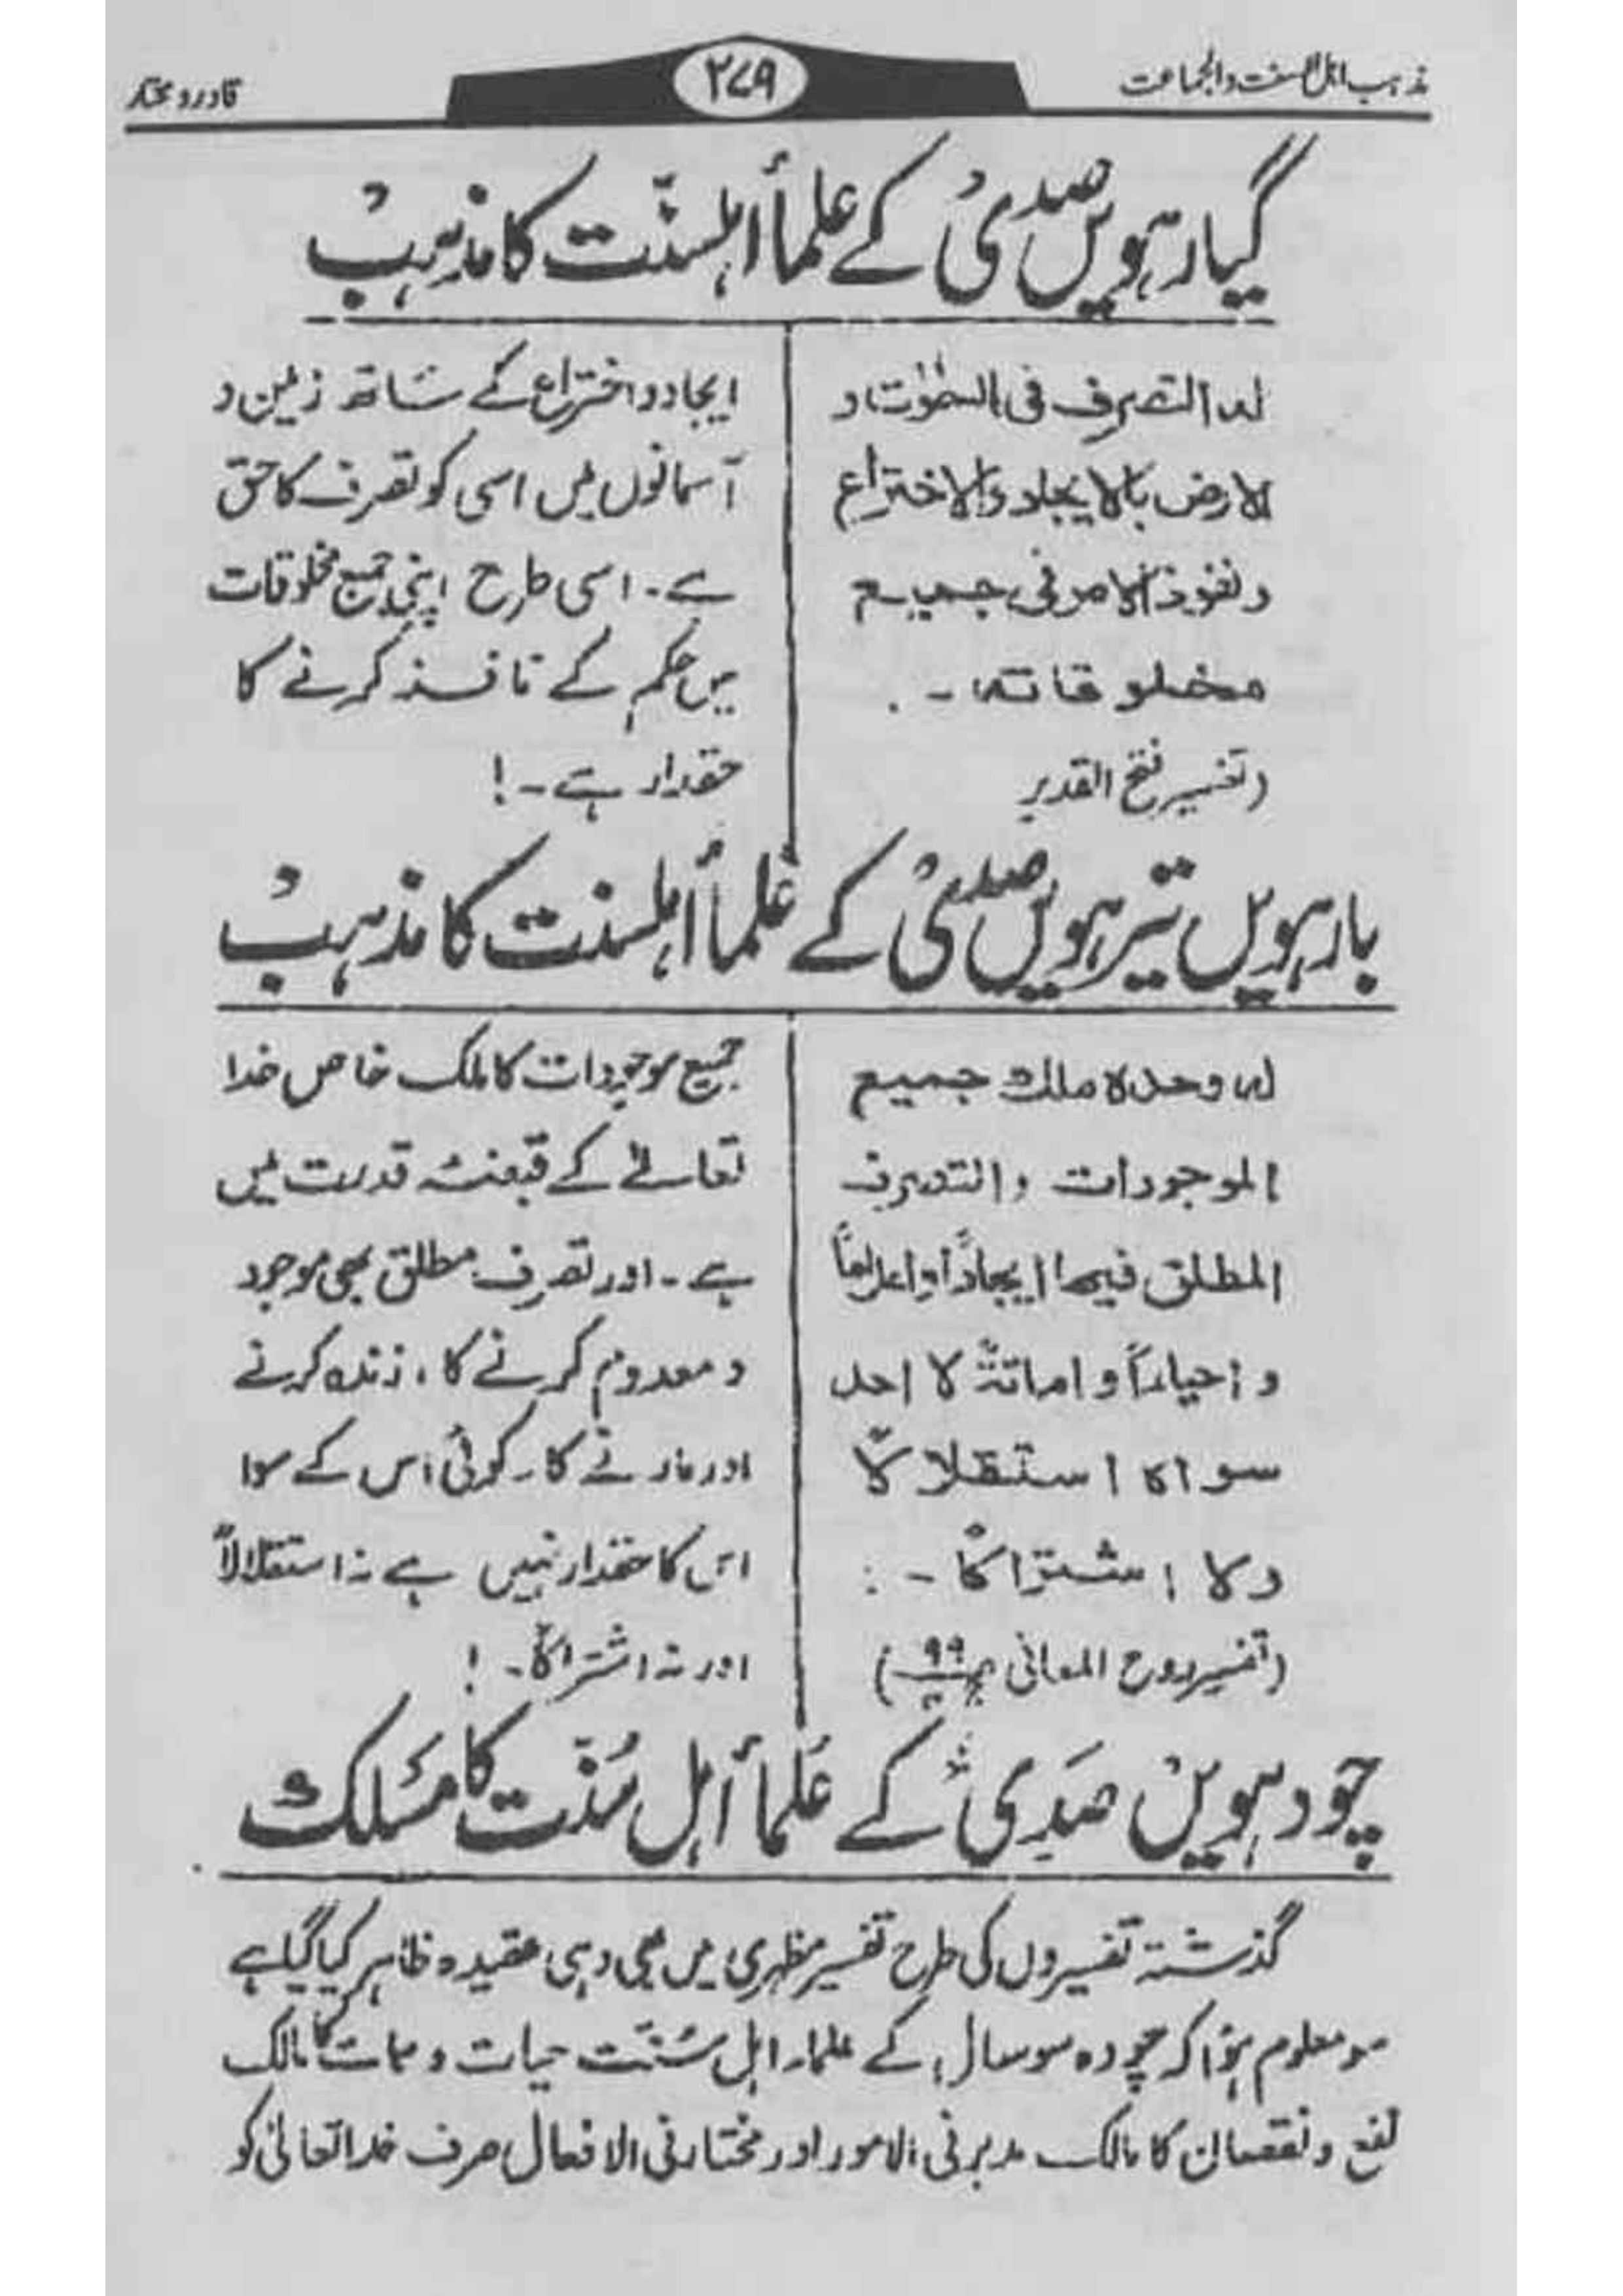 مذہب اہل السنت والجماعت
۲۷۹
قادر و مختار
گیارہویں صدی کے علمأ اہلسنّت کا مذہب
لہ التصرف فی السمٰوٰت و
الارض بالایجاد والاختراع
ونفوذ الامر فی جمیع
مخلوقاتہ ۔
(تفسیر فتح القدیر
ایجاد و اختراع کے ساتھ زمین و
آسمانوں میں اسی کو تصرف کا حق
ہے ۔ اسی طرح اپنی جمیع مخلوقات
میں حکم کے نافذ کرنے کا
حقدار ہے ۔!
بارہویں تیرہویں صدی کے علمأ اہلسنت کا مذہب
لہ وحدہ ملك جمیع
الموجودات والتصرف
المطلق فیھا ایجاداً واعداماً
و احیاءً و اماتۃً لا احد
سواہ استقلالاً
ولا اشتراکاً ۔ :
(تفسیر روح المعانی ۹۹)
جمیع موجودات کا ملک خاص خدا
تعالےٰ کے قبضۂ قدرت میں
ہے ۔ اور تصرف مطلق بھی موجود
و معدوم کرنے کا ، زندہ کرنے
اور مارنے کا ۔ کوئی اس کے سوا
اس کا حقدار نہیں ہے نہ استقلالاً
اور نہ اشتراکاً ۔ !
چودہویں صدی کے علمأ اہل سُنّت کا مسلک
گذشتہ تفسیروں کی طرح تفسیر مظہری میں بھی وہی عقیدہ ظاہر کیا گیا ہے
سو معلوم ہوا کہ چودہ سو سال کے علماء اہل سُنّت حیات و ممات کا مالک
نفع و نقصان کا مالک مدبر فی الامور اور مختار فی الافعال صرف خدا تعالیٰ کو